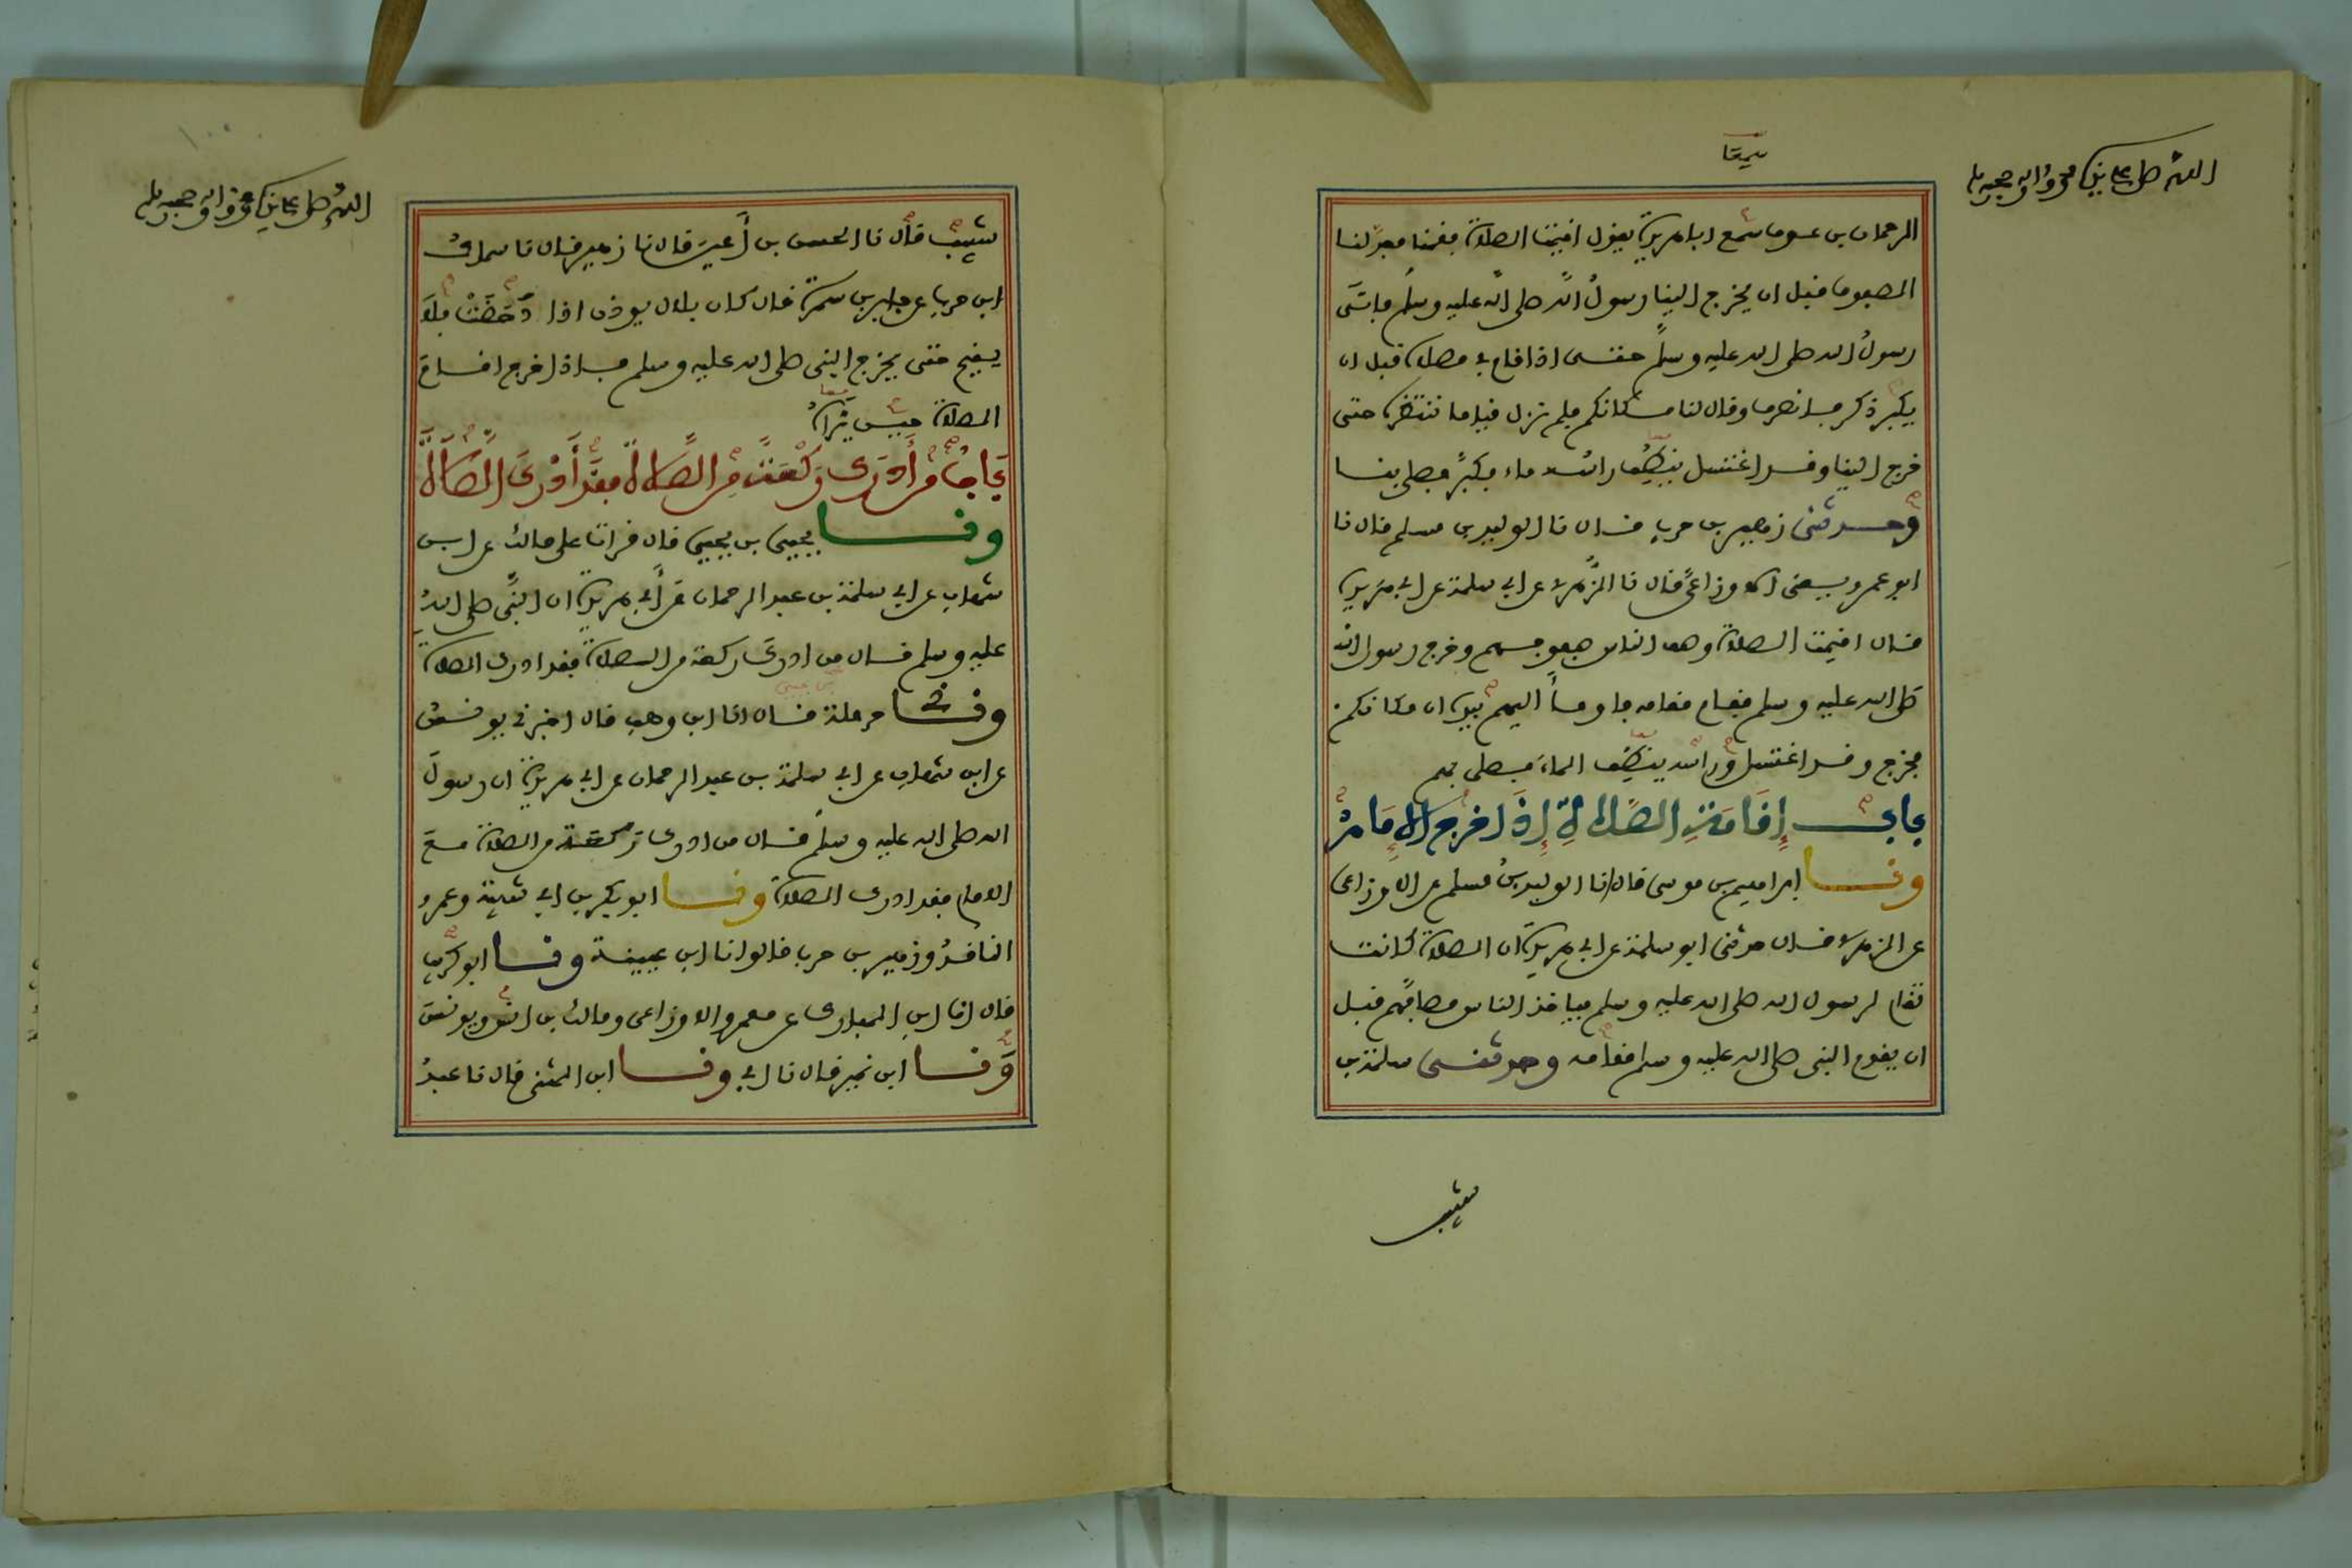 اللهم صل على نبيك محمد وآله وصحبه وسلم
الرحمان بن عوف سمع ابا هريرة يقول اقيمت الصلاة فقمنا فعدلنا
الصفوف قبل ان يخرج الينا رسول الله صلى الله عليه وسلم فاتى
رسول الله صلى الله عليه وسلم حتى اذا قام في مصلاه قبل ان
يكبر ذكر فانصرف وقال لنا مكانكم فلم نزل قياما ننتظره حتى
خرج الينا وقد اغتسل ينطف راسه ماء فكبر فصلى بنا
وحدثني زهير بن حرب قال نا الوليد بن مسلم قال نا
ابو عمرو يعني الاوزاعي قال نا الزهري عن ابي سلمة عن ابي هريرة
قال اقيمت الصلاة وصف الناس صفوفهم وخرج رسول الله
صلى الله عليه وسلم فقام مقامه فاومأ اليهم بيده ان مكانكم
فخرج وقد اغتسل وراسه ينطف الماء فصلى بهم
باب إقامة الصلاة إذا خرج الإمام
ونا ابراهيم بن موسى قال انا الوليد بن مسلم عن الاوزاعي
عن الزهري قال حدثني ابو سلمة عن ابي هريرة ان الصلاة كانت
تقام لرسول الله صلى الله عليه وسلم فياخذ الناس مصافهم قبل
ان يقوم النبي صلى الله عليه وسلم مقامه وحدثني سلمة بن
شبيب
اللهم صل على نبيك محمد وآله وصحبه وسلم
شبيب قال نا الحسن بن أعين قال نا زهير قال نا سماك
ابن حرب عن جابر بن سمرة قال كان بلال يوذن اذا دحضت فلا
يقيم حتى يخرج النبي صلى الله عليه وسلم فاذا خرج اقام
الصلاة حين يراه
باب من أدرك ركعة من الصلاة فقد أدرك الصلاة
ونا يحيى بن يحيى قال قرات على مالك عن ابن
شهاب عن ابي سلمة بن عبد الرحمان عن أبي هريرة ان النبي صلى الله
عليه وسلم قال من ادرك ركعة من الصلاة فقد ادرك الصلاة
وني حرملة بن يحيى قال انا ابن وهب قال اخبرني يونس
عن ابن شهاب عن ابي سلمة بن عبد الرحمان عن ابي هريرة ان رسول
الله صلى الله عليه وسلم قال من ادرك ركعة من الصلاة مع
الامام فقد ادرك الصلاة ونا ابو بكر بن ابي شيبة وعمرو
الناقد وزهير بن حرب قالوا نا ابن عيينة ونا ابو كريب
قال انا ابن المبارك عن معمر والاوزاعي ومالك بن انس ويونس
ونا ابن نمير قال نا ابي ونا ابن المثنى قال نا عبد